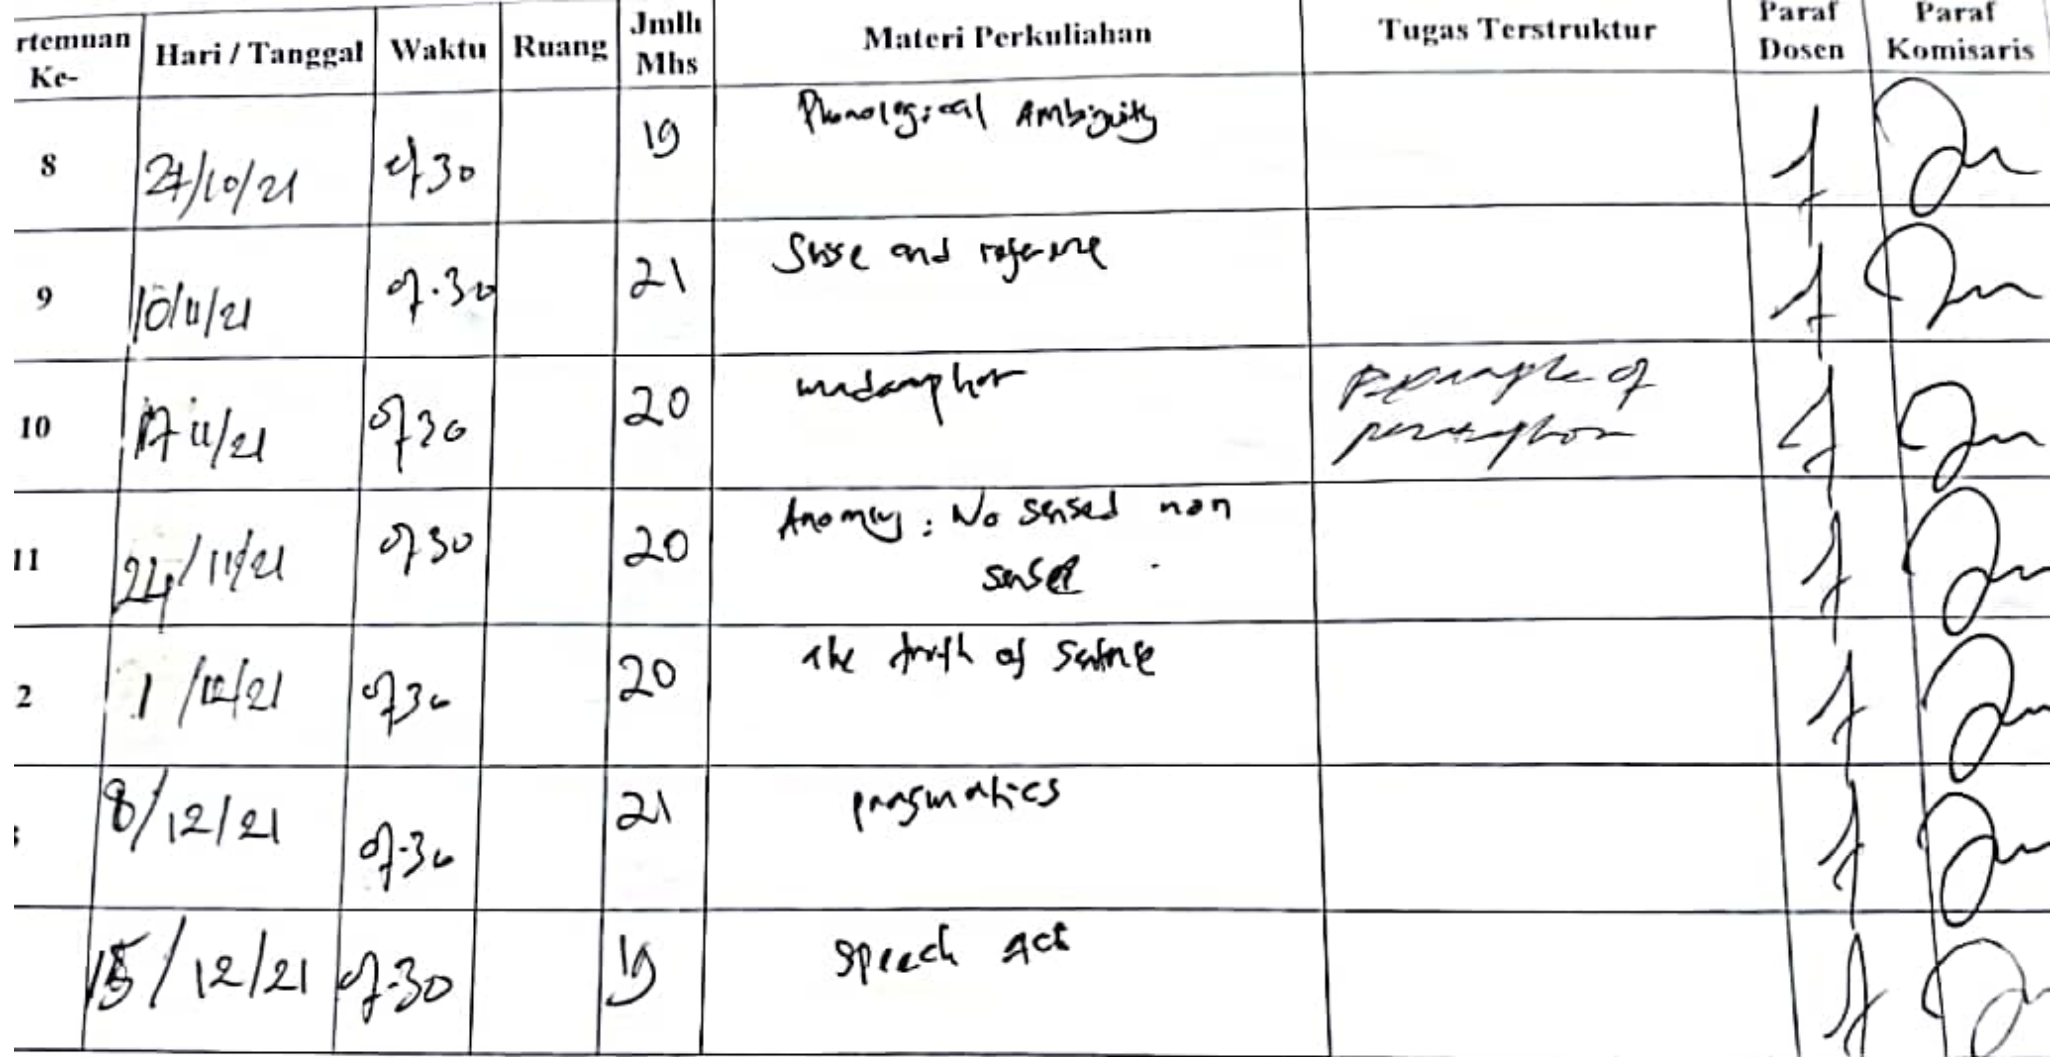 rtemuan Ke- Hari / Tanggal Waktu Ruang Jmlh Mhs Materi Perkuliahan Tugas Terstruktur Paraf Dosen Paraf Komisaris
8 27/10/21 07.30 19 Phonological Ambiguity
9 10/11/21 07.30 21 Sense and reference
10 17/11/21 0730 20
11 24/11/21 0730 20 Anomaly : No sense non
sense
2 1/12/21 0730 20 The truth of sentence
8/12/21 07.30 21 pragmatics
15/12/21 07.30 19 Speech Act